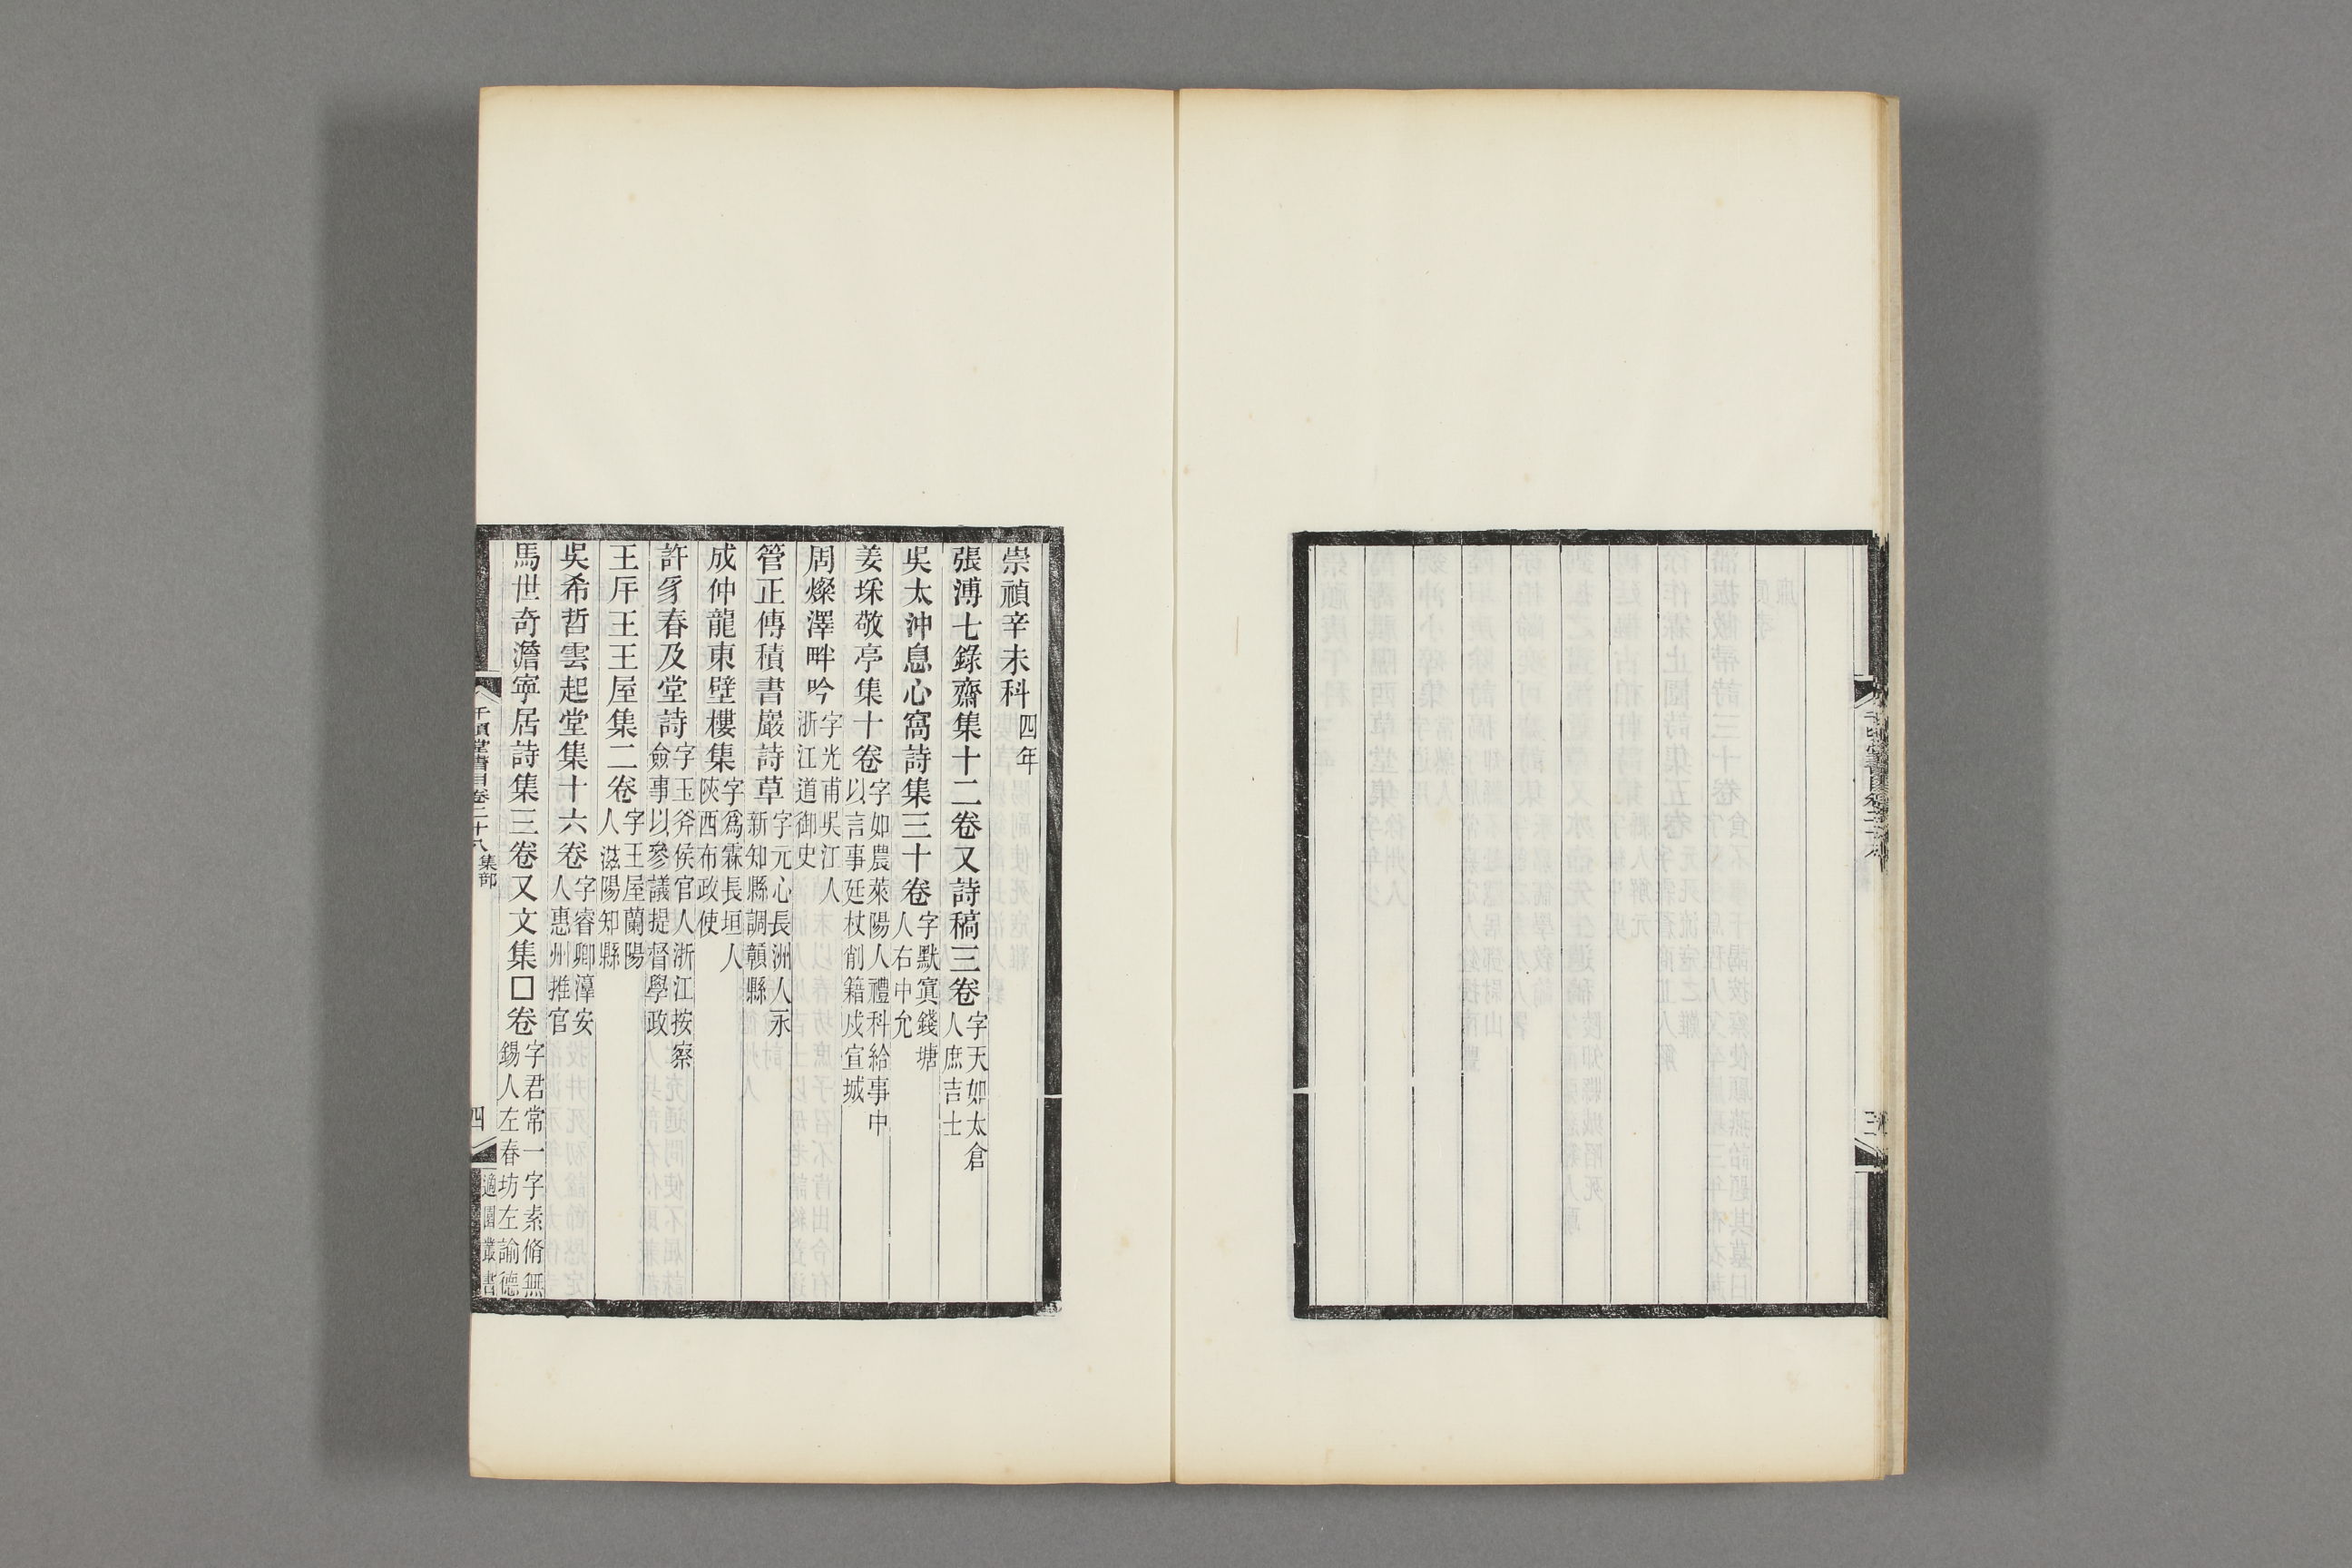 崇禎辛未科四年
張溥七錄齋集十二卷又詩稿三卷字天如太倉人庶吉士
吳太沖息心窩詩集三十卷字默寘錢塘人右中允
姜埰敬亭集十卷字如農萊陽人禮科給事中以言事廷杖削籍戍宣城
周燦澤畔吟字光甫吳江人浙江道御史
管正傳積書巖詩草字元心長洲人永新知縣調贑縣
成仲龍東壁樓集字爲霖長垣人陝西布政使
許豸春及堂詩字玉斧侯官人浙江按察僉事以參議提督學政
王厈王王屋集二卷字王屋蘭陽人滋陽知縣
吳希哲雲起堂集十六卷字睿卿淳安人惠州推官
馬世奇澹寧居詩集三卷又文集□卷字君常一字素脩無錫人左春坊左諭德
千頃堂書目卷二十八 集部
四
適園叢書